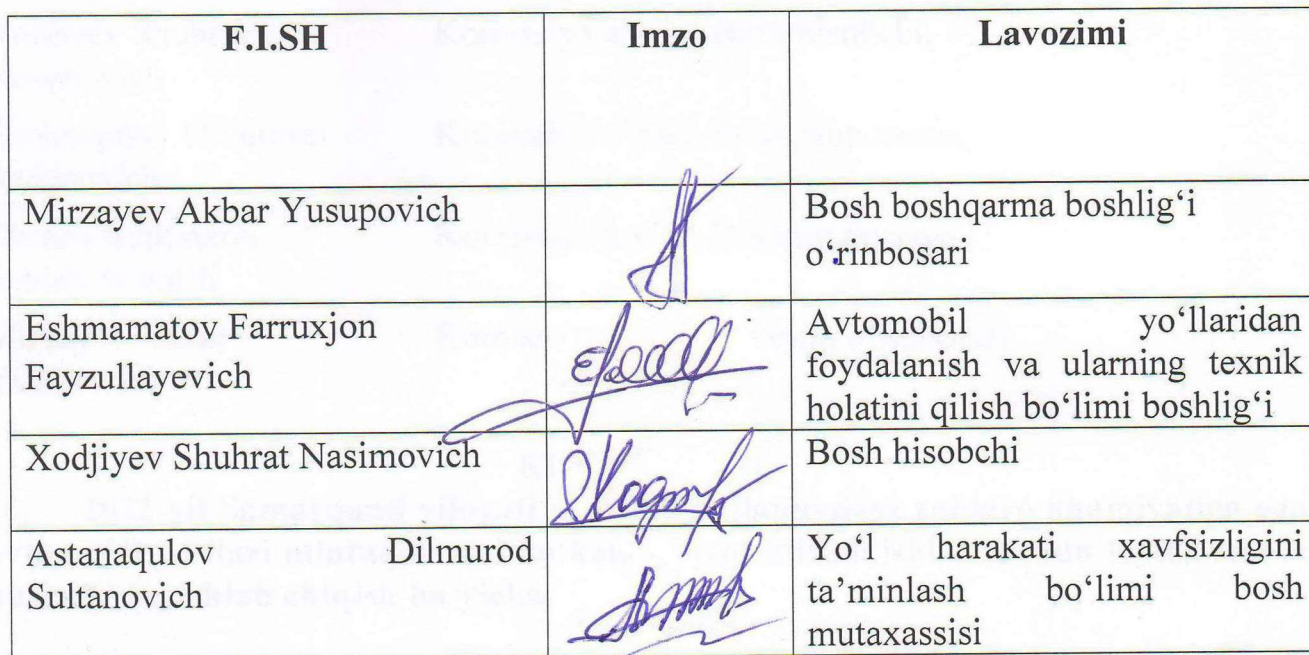 F.I.SH Imzo Lavozimi
Mirzayev Akbar Yusupovich Bosh boshqarma boshlig‘i
o‘rinbosari
Eshmamatov Farruxjon Avtomobil yo‘llaridan
Fayzullayevich foydalanish va ularning texnik
holatini qilish bo‘limi boshlig‘i
Xodjiyev Shuhrat Nasimovich Bosh hisobchi
Astanaqulov Dilmurod Yo‘l harakati xavfsizligini
Sultanovich ta’minlash bo‘limi bosh
mutaxassisi